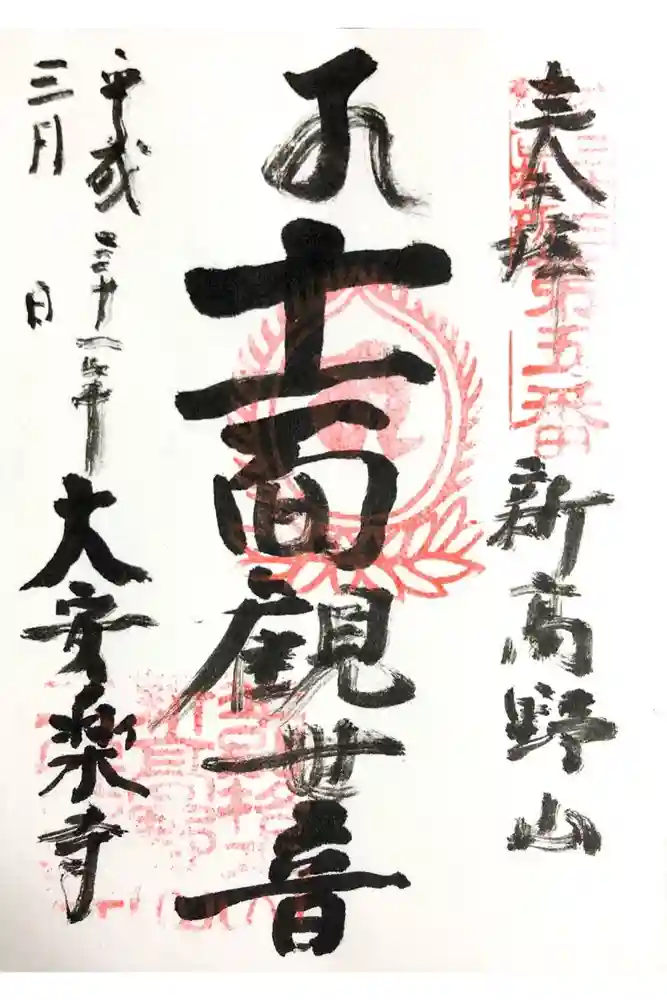 奉拝
第五番
新高野山
十一面観世音
平成三十一年
三月　日
大安楽寺